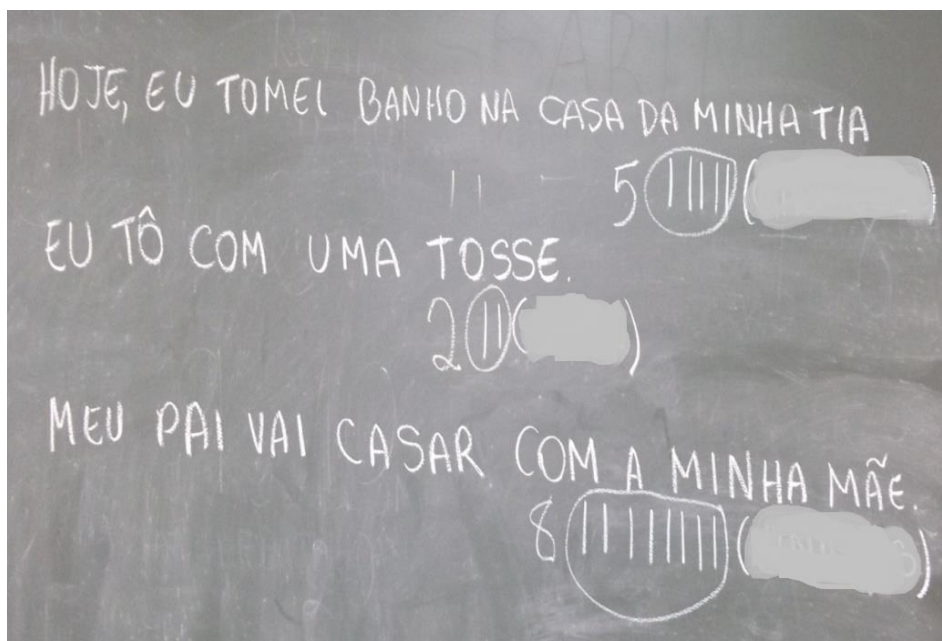 HOJE, EU TOMEI BANHO NA CASA DA MINHA TIA
5 ||||| ( )
EU TÔ COM UMA TOSSE.
2 || ( )
MEU PAI VAI CASAR COM A MINHA MÃE.
8 |||||||| ( )